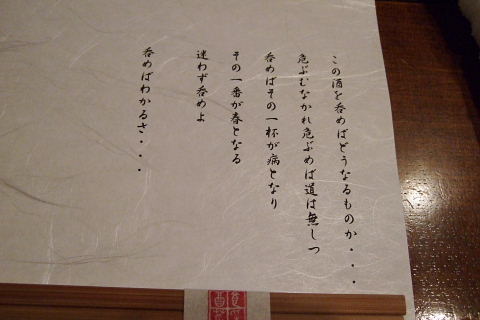 この酒を呑めばどうなるものか・・・
危ぶむなかれ危ぶめば道は無しつ
呑めばその一杯が病となり
その一番が春となる
迷わず呑めよ
呑めばわかるさ・・・